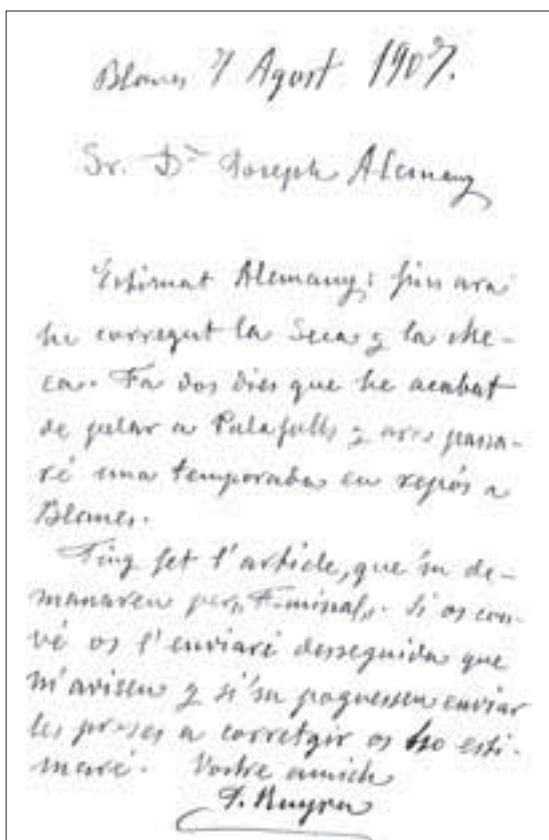 Blanes 7 Agost 1907.
Sr. Dn Joseph Alemany
Estimat Alemany: fins ara
he corregut la Seca y la Me-
ca. Fa dos dies que he acabat
de pelar a Palafolls y ara passa-
ré una temporada en repós a
Blanes.
Ting fet l'article, que 'm de-
manareu per „Feminal„. Si os con-
vé os l'enviaré desseguida que
m'aviseu y si 'm poguesseu enviar
les proves a corretgir os ho esti-
maré. Vostre amich
J. Ruyra